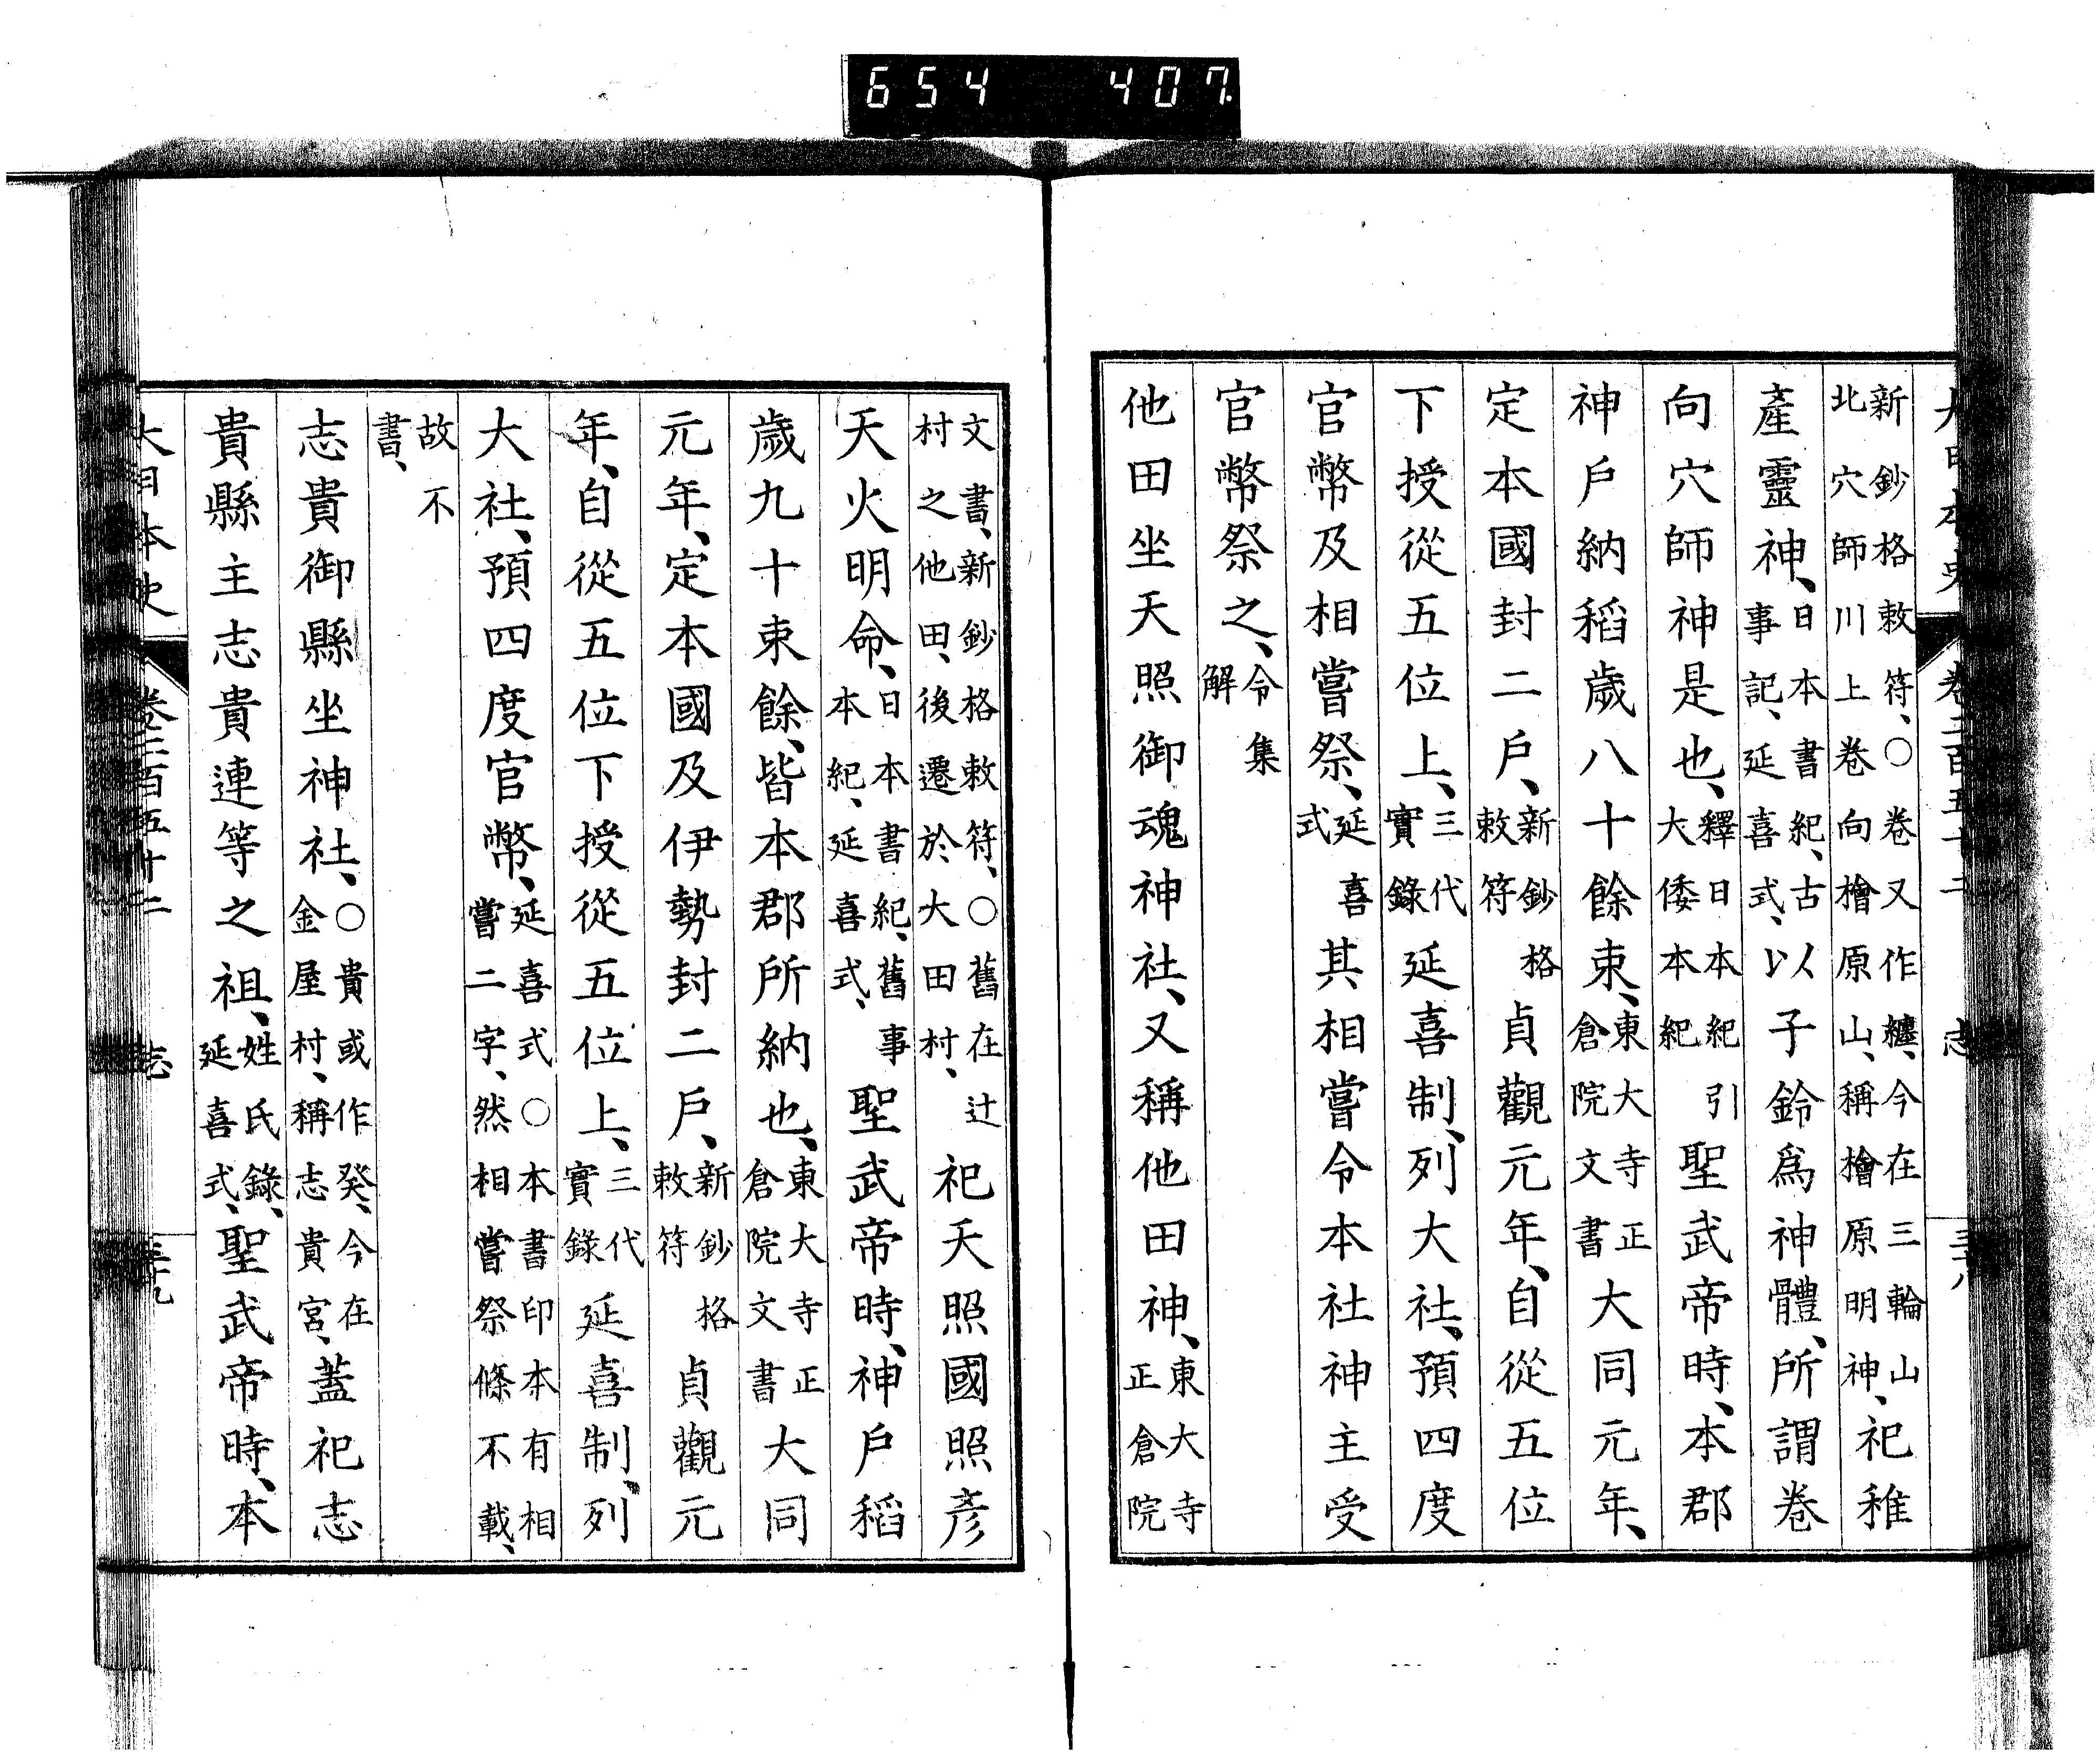 654 407
大日本史 卷二百五十二 志 三十八
新鈔格敕符、○卷又作纏、今在三輪山北穴師川上卷向檜原山、稱檜原明神、祀稚
產靈神、日本書紀、古事記、延喜式、以子鈴爲神體、所謂卷
向穴師神是也、釋日本紀引大倭本紀聖武帝時、本郡
神戶納稻歲八十餘束、東大寺正倉院文書大同元年、
定本國封二戶、新鈔格敕符貞觀元年、自從五位
下授從五位上、三代實錄延喜制、列大社、預四度
官幣及相嘗祭、延喜式其相嘗令本社神主受
官幣祭之、令集解
他田坐天照御魂神社、又稱他田神、東大寺正倉院
文書、新鈔格敕符、○舊在辻村之他田、後遷於大田村、祀天照國照彥
天火明命、日本書紀、舊事本紀、延喜式、聖武帝時、神戶稻
歲九十束餘、皆本郡所納也、東大寺正倉院文書大同
元年、定本國及伊勢封二戶、新鈔格敕符貞觀元
年、自從五位下授從五位上、三代實錄延喜制、列
大社、預四度官幣、延喜式○本書印本有相嘗二字、然相嘗祭條不載、
故不書、
志貴御縣坐神社、○貴或作癸、今在金屋村、稱志貴宮、蓋祀志
貴縣主志貴連等之祖、姓氏錄、延喜式、聖武帝時、本
大日本史 卷二百五十二 志 三十九